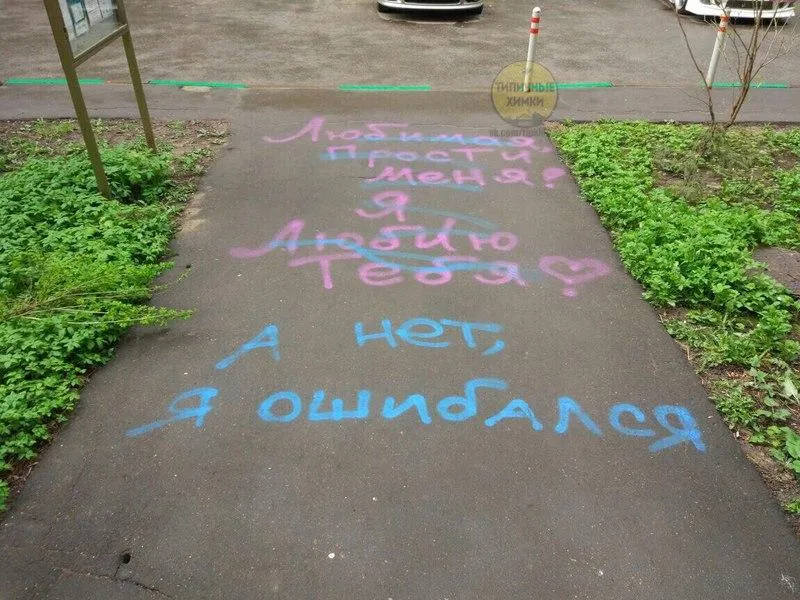 ТИПИЧНЫЕ
ХИМКИ
Любимая,
Прости
меня!
Я
Люблю
Тебя!
А нет,
Я ошибался